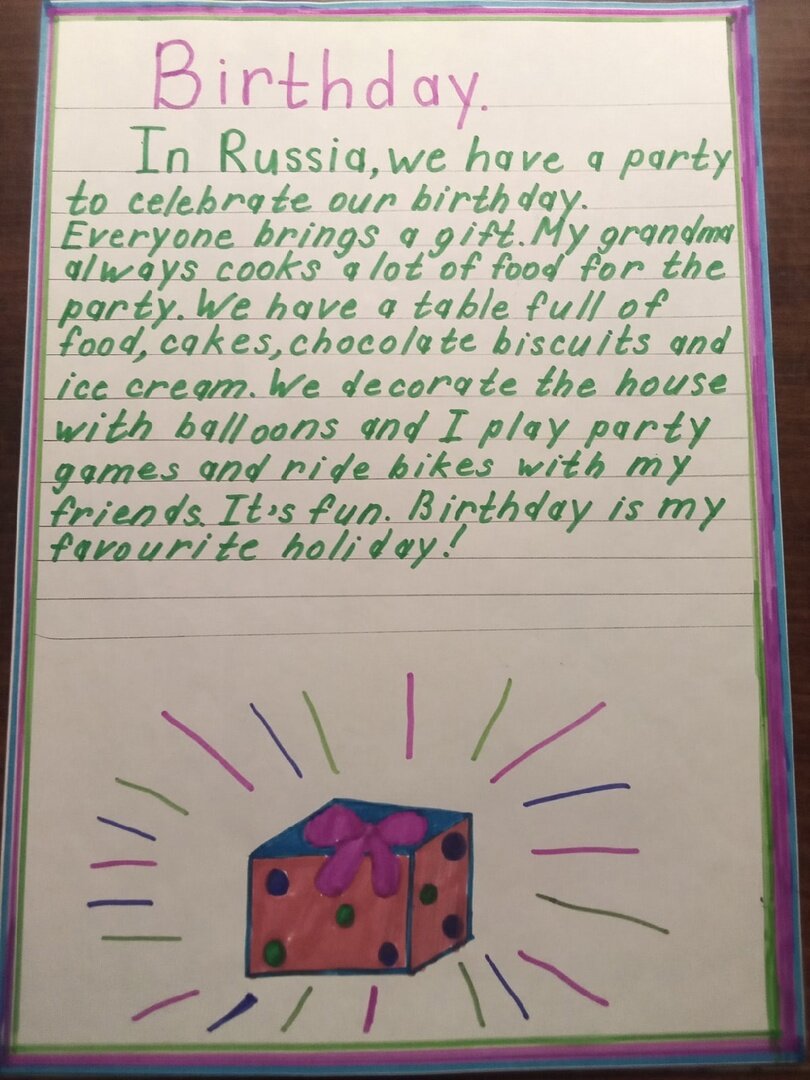 Birthday.
In Russia, we have a party
to celebrate our birthday.
Everyone brings a gift. My grandma
always cooks a lot of food for the
party. We have a table full of
food, cakes, chocolate biscuits and
ice cream. We decorate the house
with balloons and I play party
games and ride bikes with my
friends. It's fun. Birthday is my
favourite holiday!